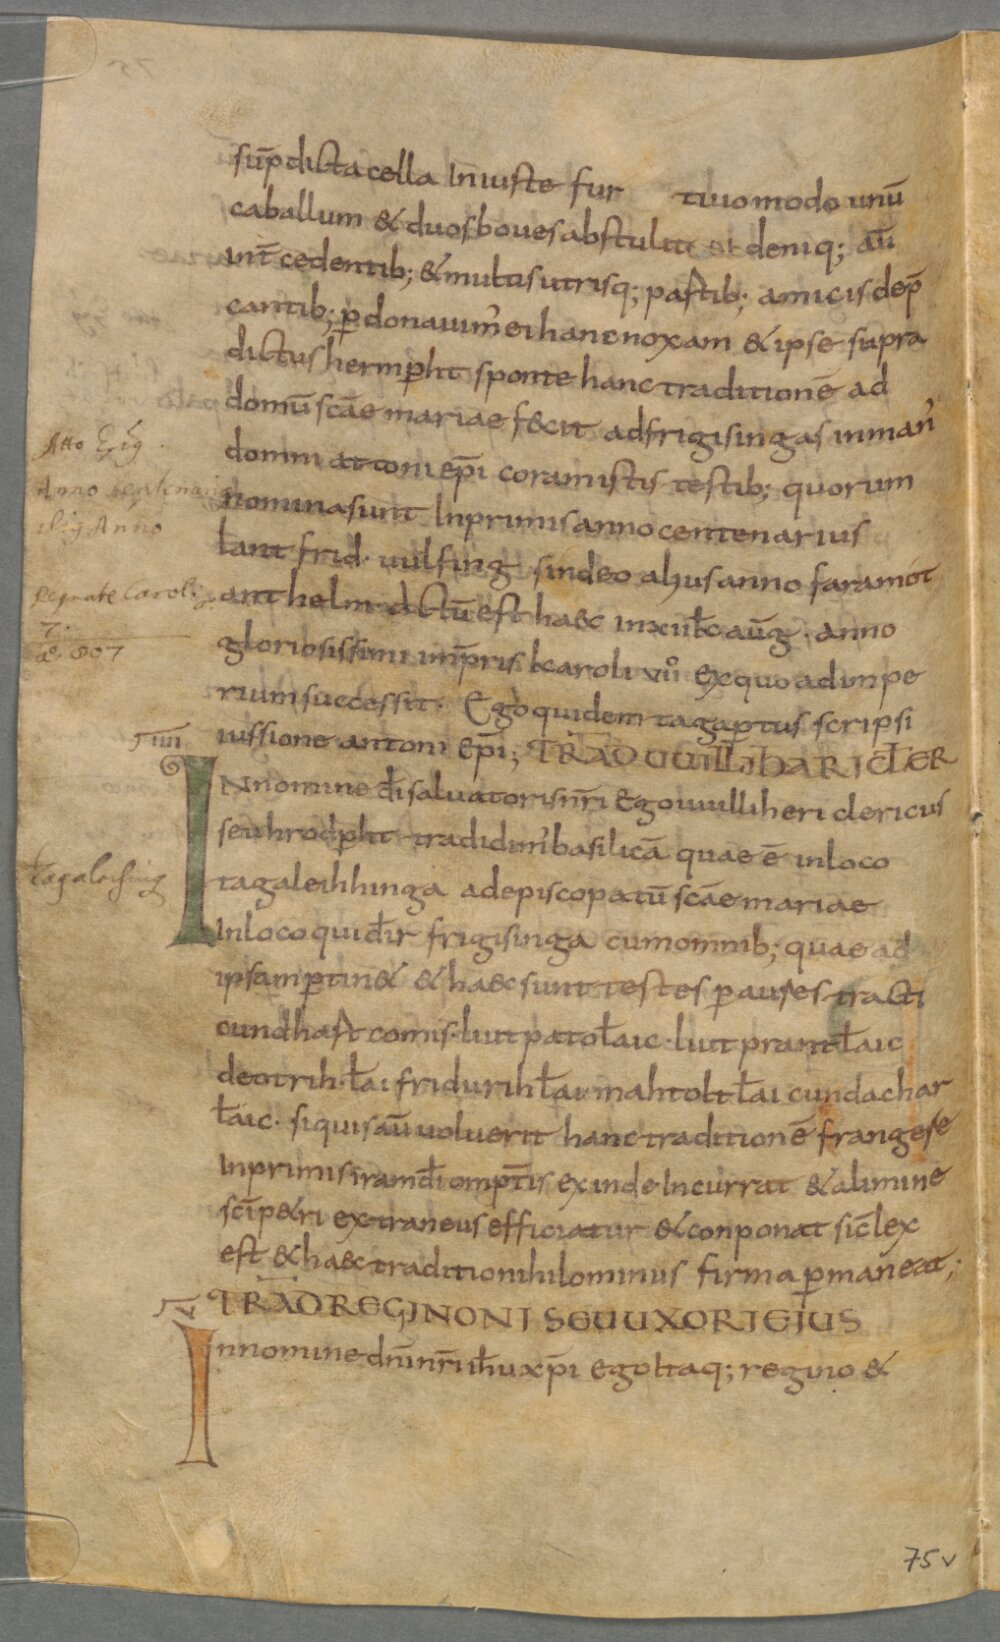 sup̄dicta cella Iniuste fur tiuo modo unū
caballum & duos boues abstulit et deniq; aū
int̄ cedentib; & multis utrisq; partib; amicis dep̄
cantib; ꝑdonauim᾿ ei hanc noxam & ipse supra
dictus hermꝑht sponte hanc traditionē ad
domū scāe mariae fecit ad frigisingas in man᾿
domni attoni ep̄i coram istis testib; quorum
Atto Epīs
nomina sunt Inprimis anno centenarius
Anno centenari
lant frid· uulfing sindeo alius anno faramot
ant helm actū est haec in xiii kł aūg· anno
Regnāte Caroli
gloriosissimi imp̄ris karoli vii° ex quo ad impe
7.
aº. 807
rium successit· Ego quidem tagaꝑtus scripsi
iussione attoni ep̄i; TRAD UUILLIHARI CLER
IIII
INnomine dī saluatoris nr̄i Ego uuilliheri clericus
seu hrodꝑht tradidim᾿ basilicā quae ē in loco
tagaleihhinga ad episcopatū scāe mariae
Tagalaching
In loco qui dr̄ frigisinga cum omnib; quae ad
ipsam ꝑtin& & haec sunt testes ꝑ aures tracti
cundhart comis· liutpato łaic· liutprant łaic
deotrih· łai fridurih łai mahtolt łai cundachar
łaic· siquis aū uoluerit hanc traditionē frangere
Inprimis iram dī omp̄tis exinde Incurrat & a limine
scī p&ri extraneus efficiatur & conponat sic lex
est & haec traditio nihilominus firma ꝑmaneat;
V TRAD REGINONI SEU UXORI EIUS
Innomine dn̄i nr̄i ih̄u xp̄i ego Itaq; regino &
75v